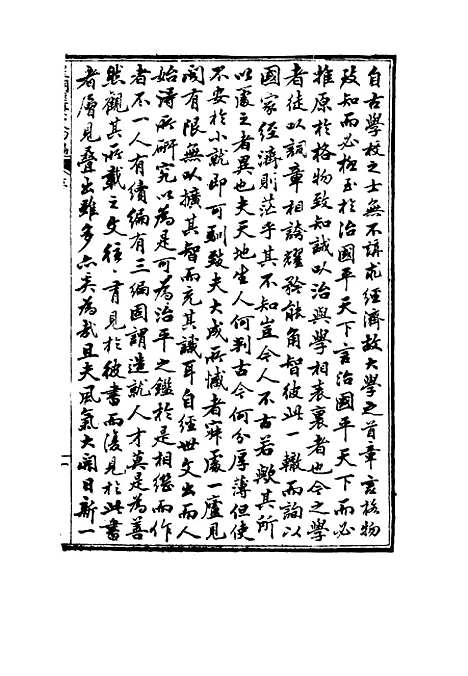 自古學校之士無不講求經濟故大學之首章言格物
致知而必極至於治國平天下言治國平天下而必
推原於格物致知誠以治與學相表裏者也今之學
者徒以詞章相誇耀務能角智彼此一轍而詢以
國家經濟則茫乎其不知豈今人不古若歟其所
以處之者異也夫天地生人何判古今何分厚薄但使
不安於小就即可馴致夫大成所憾者寐處一廬見
聞有限無以擴其智而充其識耳自經世文出而人
始得所研究以為是可為治平之鑑於是相繼而作
者不一人有續編有三編固謂造就人才莫是為善
然觀其所載之文往、有見於彼書而復見於此書
者層見叠出雖多亦奚為哉且夫風氣大開日新一